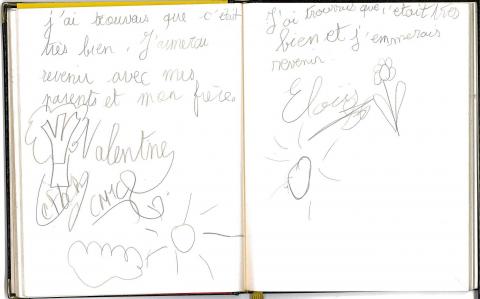 j'ai trouvais que c'était
très bien. J'aimerai
revenir avec mes
parents et mon frère.
Valentine
CM2
J'ai trouvais que c'était très
bien et j'emmerais
revenir.
Eloïs